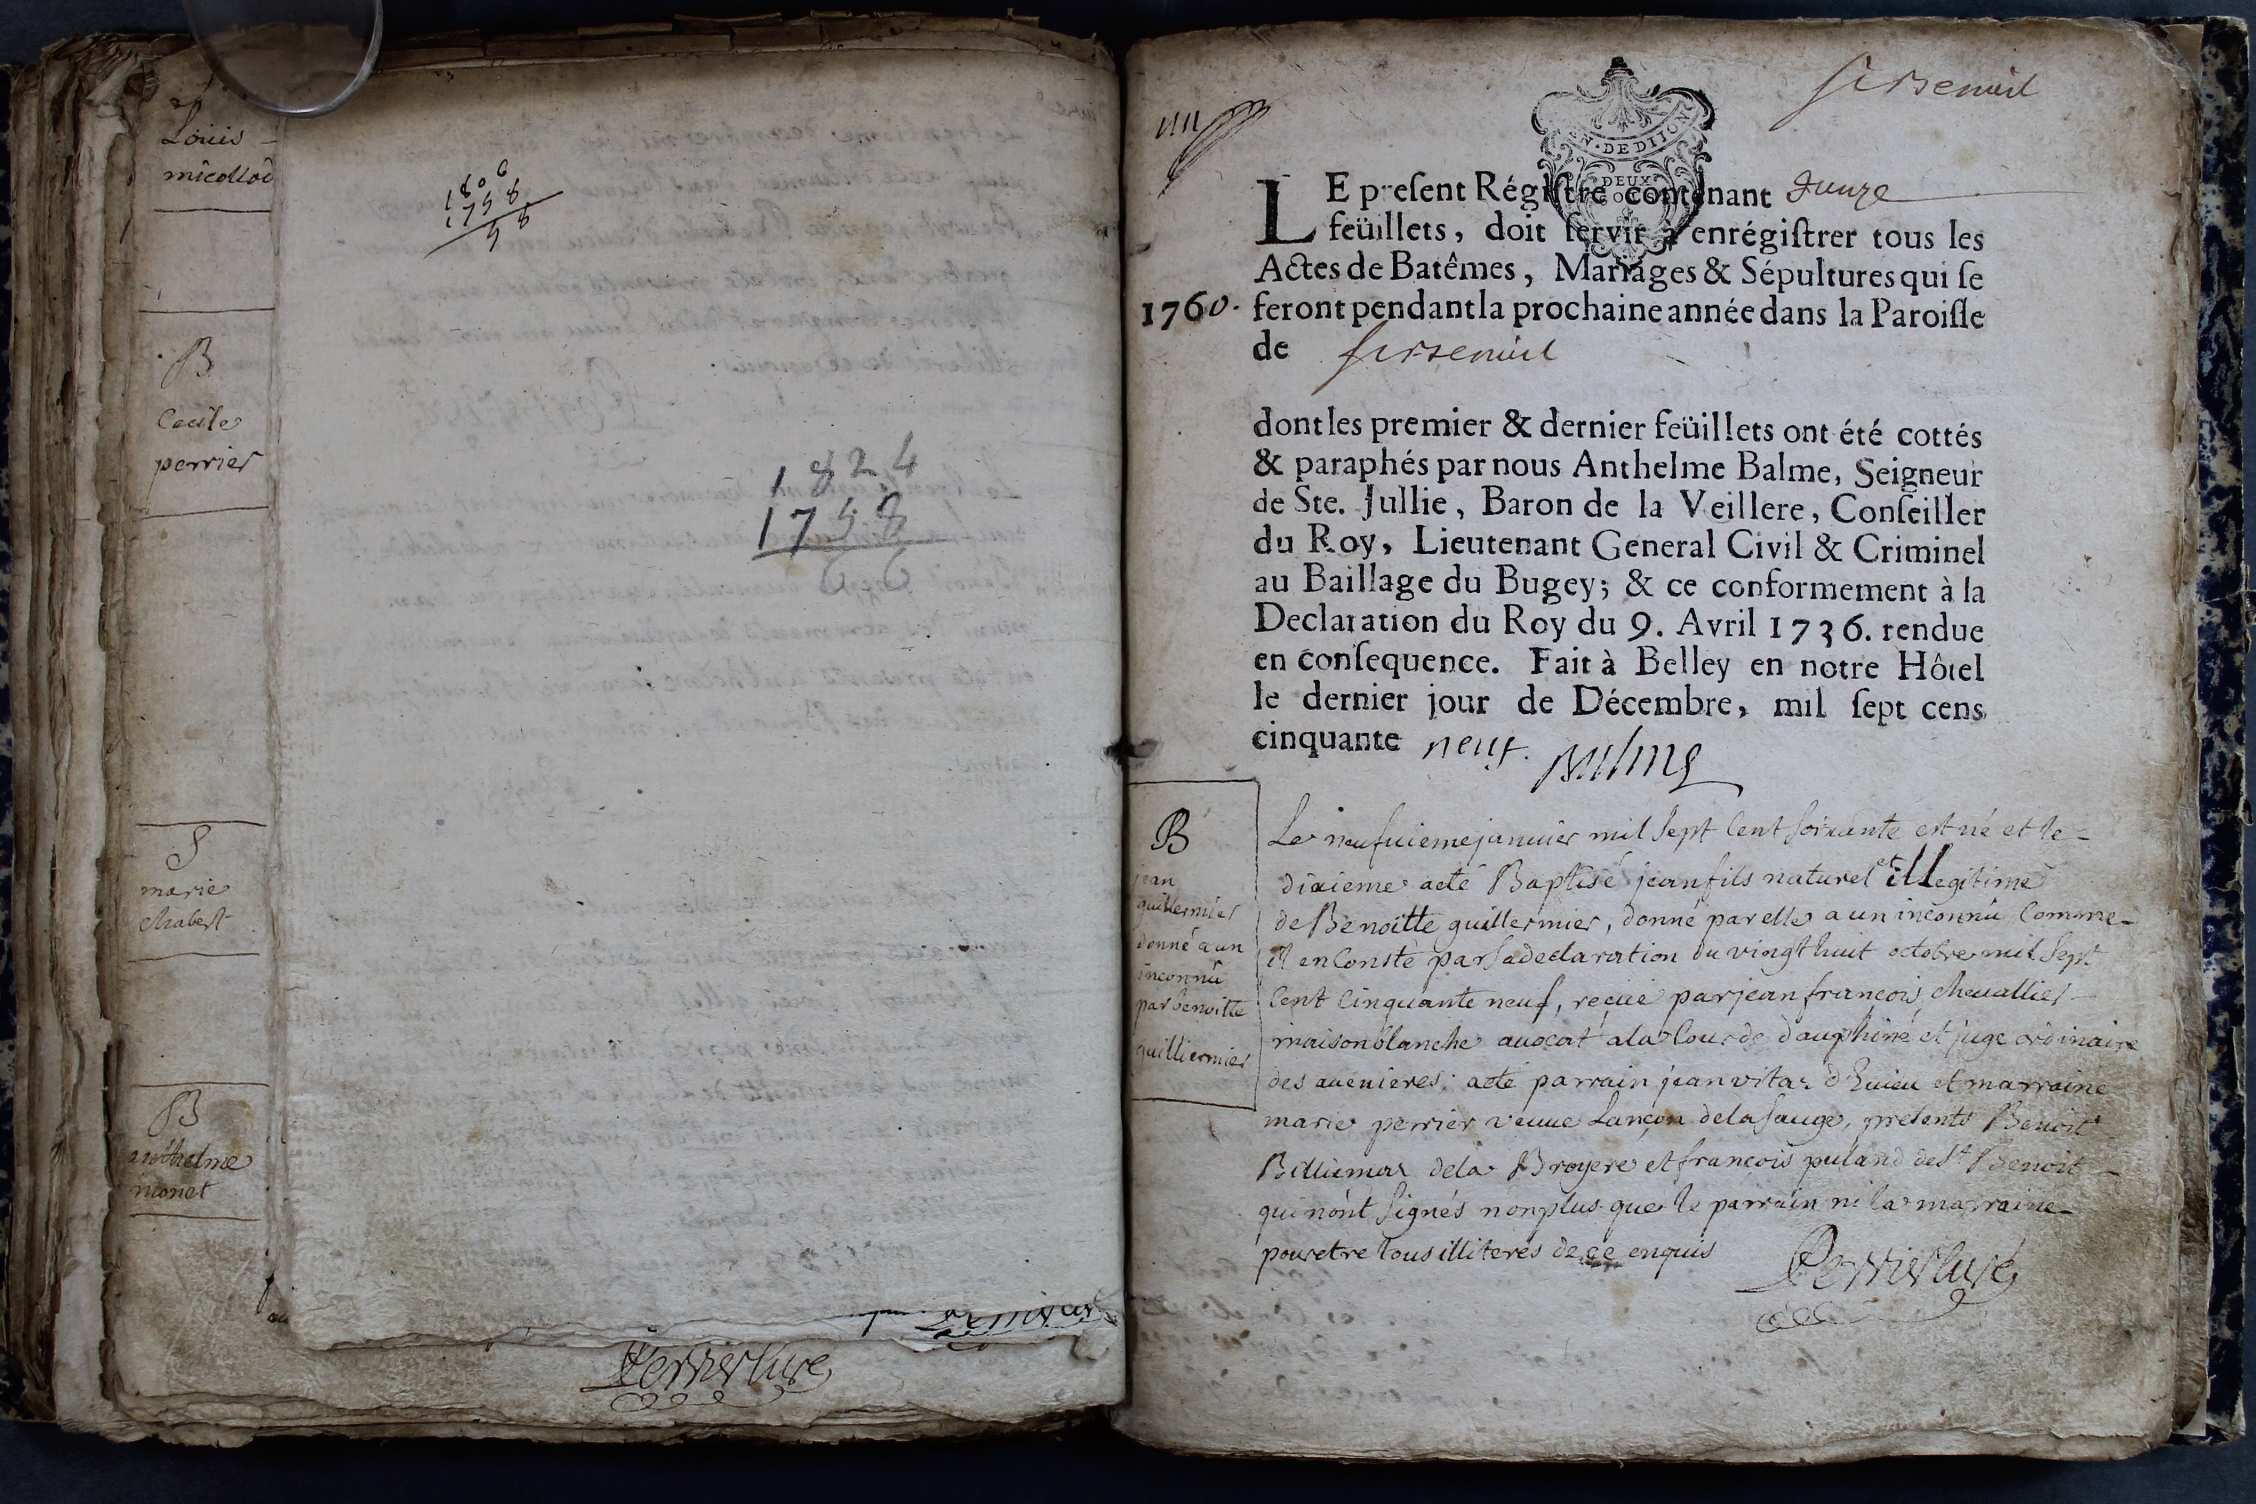 Louis
micollod
B
Cecile
perrier
S
marie
chabert
B
anthelme
monet
1806
1758
58
1824
1758
66
Perrier Curé
GEN. DE DIJON
DEUX
LE present Régistre contenant
feüillets, doit servir à enrégistrer tous les
Actes de Batêmes, Mariages & Sépultures qui se
1760. feront pendant la prochaine année dans la Paroisse
de
dont les premier & dernier feüillets ont été cottés
& paraphés par nous Anthelme Balme, Seigneur
de Ste. Jullie, Baron de la Veillere, Conseiller
du Roy, Lieutenant General Civil & Criminel
au Baillage du Bugey; & ce conformement à la
Declaration du Roy du 9. Avril 1736. rendue
en consequence. Fait à Belley en notre Hôtel
le dernier jour de Décembre, mil sept cens
cinquante neuf. Balme
B
jean
guillermier
donné a un
inconnû
par benoitte
guilliermier
Le neufvieme janvier mil sept Cent soixante est né et le
dixieme a eté Baptisé jean fils naturel et illegitime
de Benoitte guillermier, donné par elle a un inconnû Comme
il en Conste par sa declaration du vingt huit octobre mil sept
Cent Cinquante neuf, reçue par jean francois chevallier
maisonblanche avocat a la Cour de dauphiné et juge ordinaire
des avenieres: a eté parrain jean vitaz d'Evieu et marraine
marie perrier veuve Lançon de la sauge, presents Benoit
de la Broyere et francois puland de St Benoit
qui n'ont signés non plus que le parrain ni la marraine
pour etre tous illiteres de ce enquis
Perrier Curé